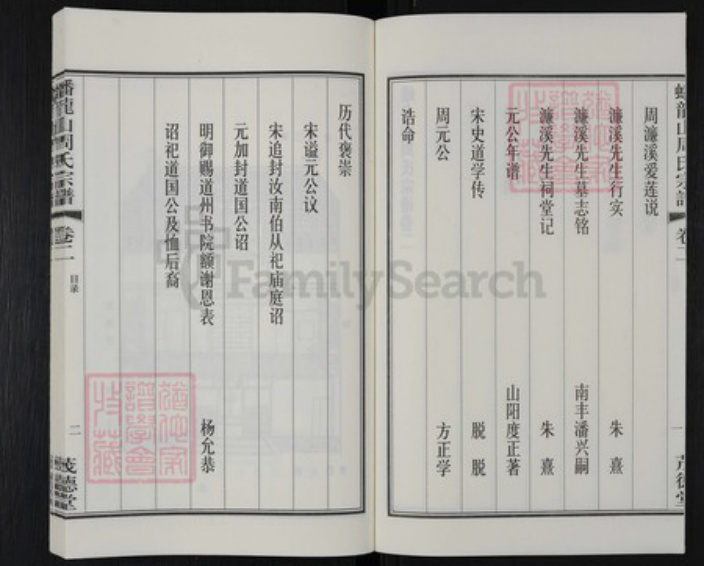 蟠龍山周氏宗譜 卷二 一 茂德堂
周濂溪爱莲说
濂溪先生行实 朱熹
濂溪先生墓志铭 南丰潘兴嗣
濂溪先生祠堂记 朱熹
元公年谱 山阳度正著
宋史道学传 脱脱
周元公 方正学
诰命
历代褒崇
宋谥元公议
宋追封汝南伯从祀庙庭诏
元加封道国公诏
明御赐道州书院额谢恩表 杨允恭
诏祀道国公及恤后裔
蟠龍山周氏宗譜 卷二 目录 二 茂德堂
FamilySearch